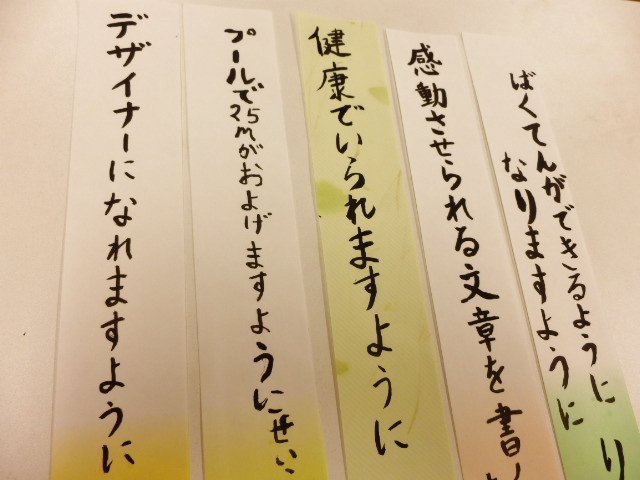 ばくてんができるように
なりますように
り
感動させられる文章を書
健康でいられますように
プールで25mがおよげますように
せい
デザイナーになれますように